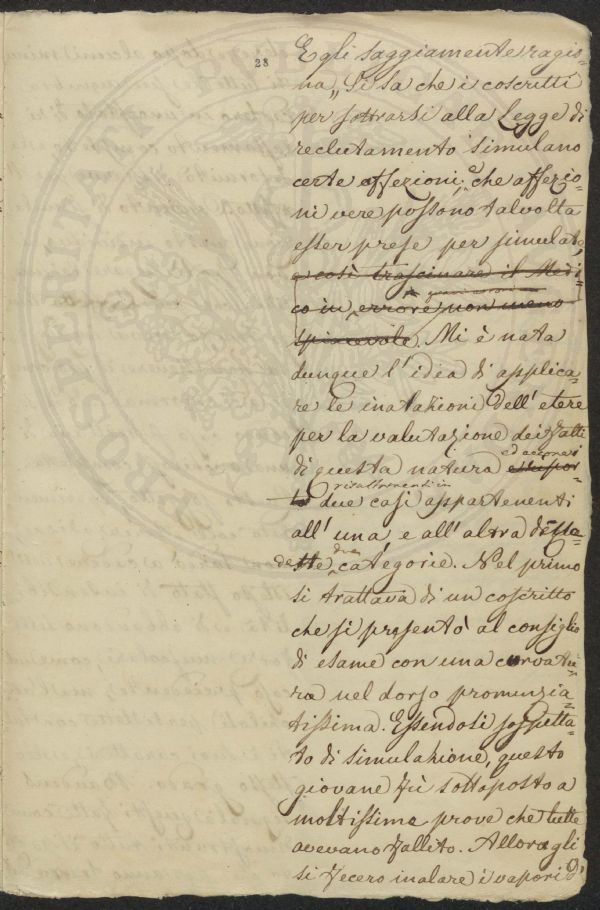 28
Egli saggiamente ragio=
na „ Si sa che i coscritti
per sottrarsi alla Legge di
reclutamento simulano
certe affezioni, e che affezio=
ni vere possono talvolta
esser prese per simulate,
e così trascinare il Medi=
co in errore non meno
spiacevole. Mi è nata
dunque l'idea di applica=
re le inalazioni dell'etere
per la valutazione dei fatti
di questa natura ed accennai
due casi appartenenti
all'una, e all'altra delle
dette due categorie. Nel primo
si trattava di un coscritto
che si presentò al consiglio
di esame con una curvatu=
ra nel dorso pronunzia=
tissima. Essendosi sospetta=
to di simulazione, questo
giovane fù sottoposto a
moltissime prove che tutte
avevano fallito. Allora gli
si fecero inalare i vapori di